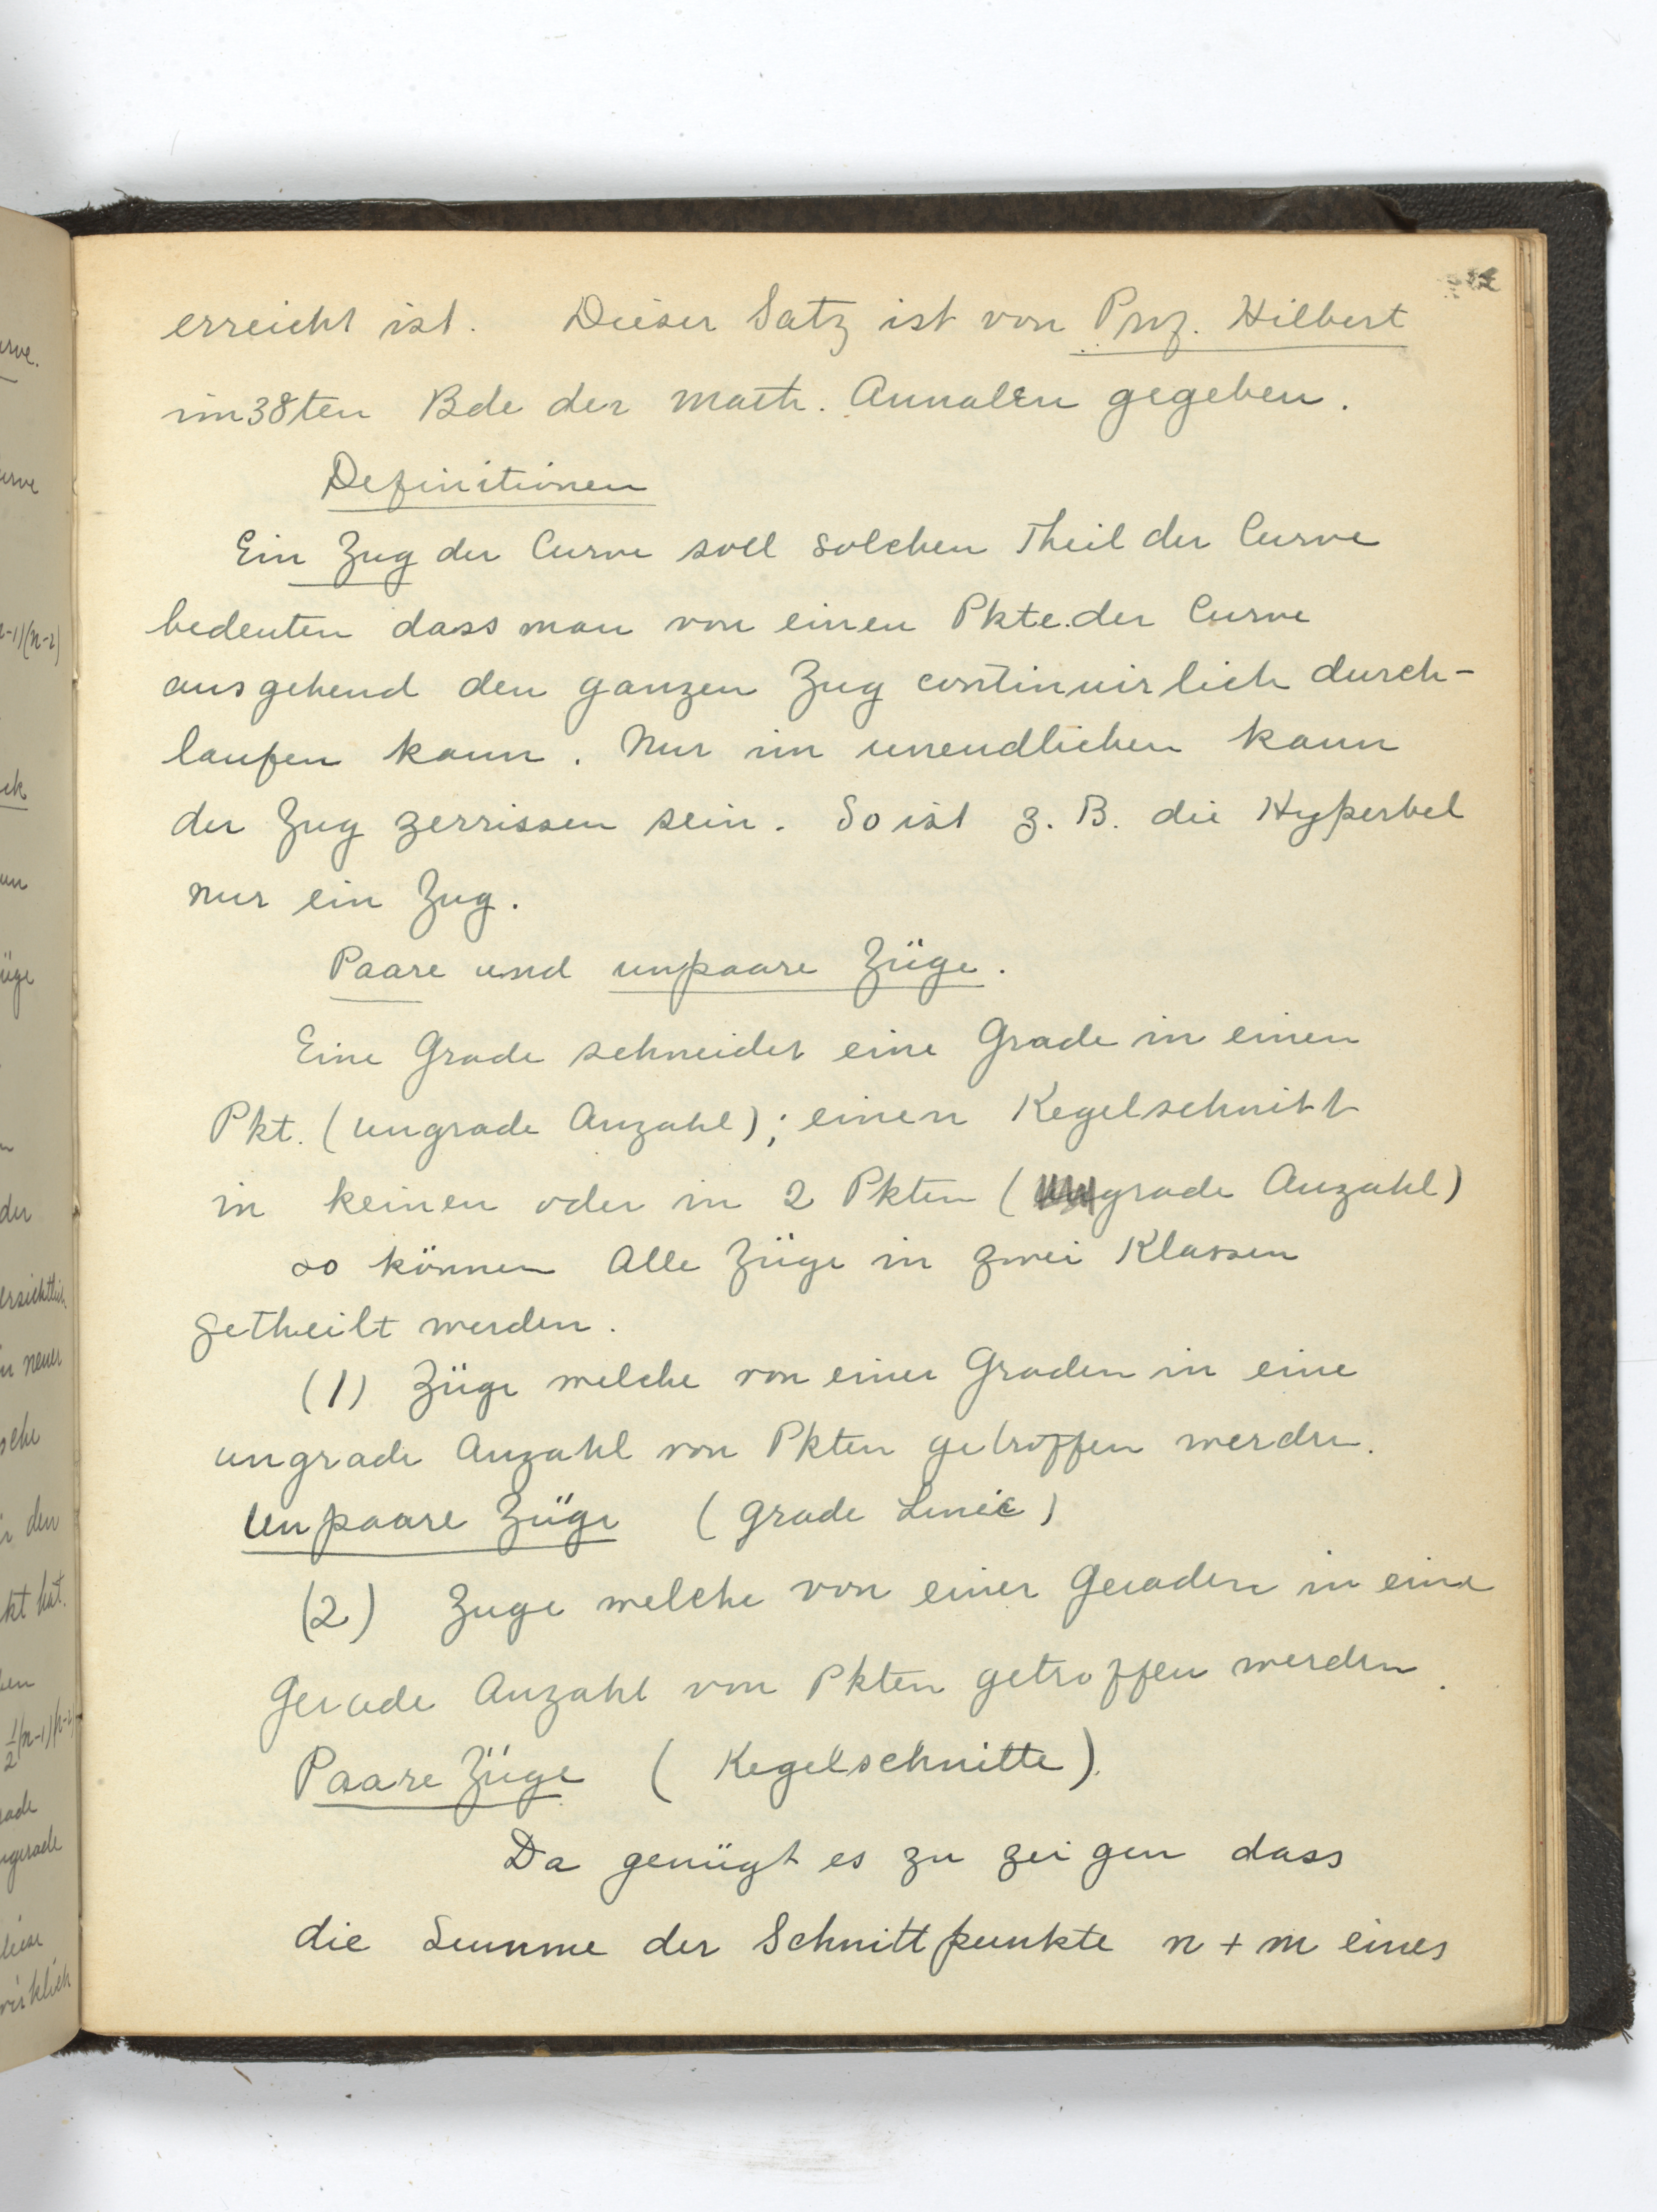 erreicht ist. Dieser Satz ist von Prof. Hilbert
im 38ten Bde der Math. Annalen gegeben.
Definitionen
Ein Zug der Curve soll solchen Theil der Curve
bedeuten dass man von einen Pkte der Curve
ausgehend den ganzen Zug continuirlich durch-
laufen kann. Nur im unendlichen kann
der Zug zerrissen sein. So ist z. B. die Hyperbel
nur ein Zug.
Paare und unpaare Züge.
Eine Grade schneidet eine Grade in einen
Pkt. (ungrade Anzahl); einen Kegelschnitt
in keinen oder in 2 Pkten (grade Anzahl)
so können Alle Züge in zwei Klassen
getheilt werden.
(1) Züge welche von einer Graden in eine
ungrade Anzahl von Pkten getroffen werden.
Unpaare Züge (grade Linie)
(2) Zuge welche von einer Geraden in eine
Gerade Anzahl von Pkten getroffen werden.
Paare Züge (Kegelschnitte).
Da genügt es zu zeigen dass
die Summe der Schnittpunkte n + m eines
rve.
urve
n-1)(n-2)
üge
der
ersichtlich
n neuer
den
kt hat.
1/2(n-1)(n-2)
ngerade
diese
wirklich